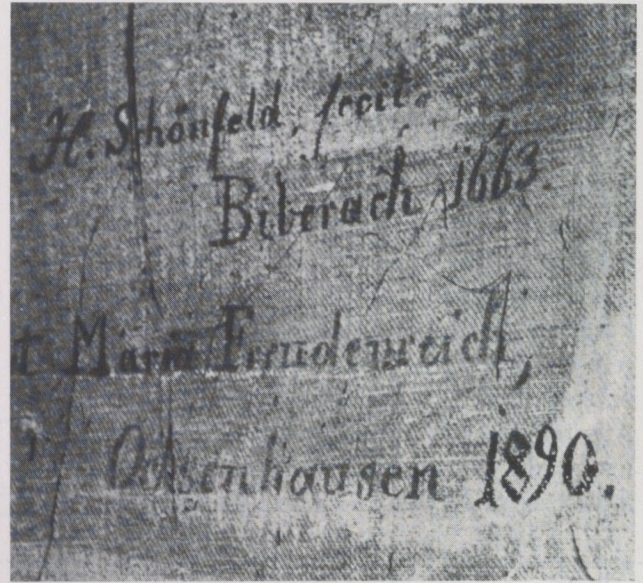 H. Schönfeld, fecit.
Biberach 1663
t Maria Freudenreich,
Ochsenhausen 1890.